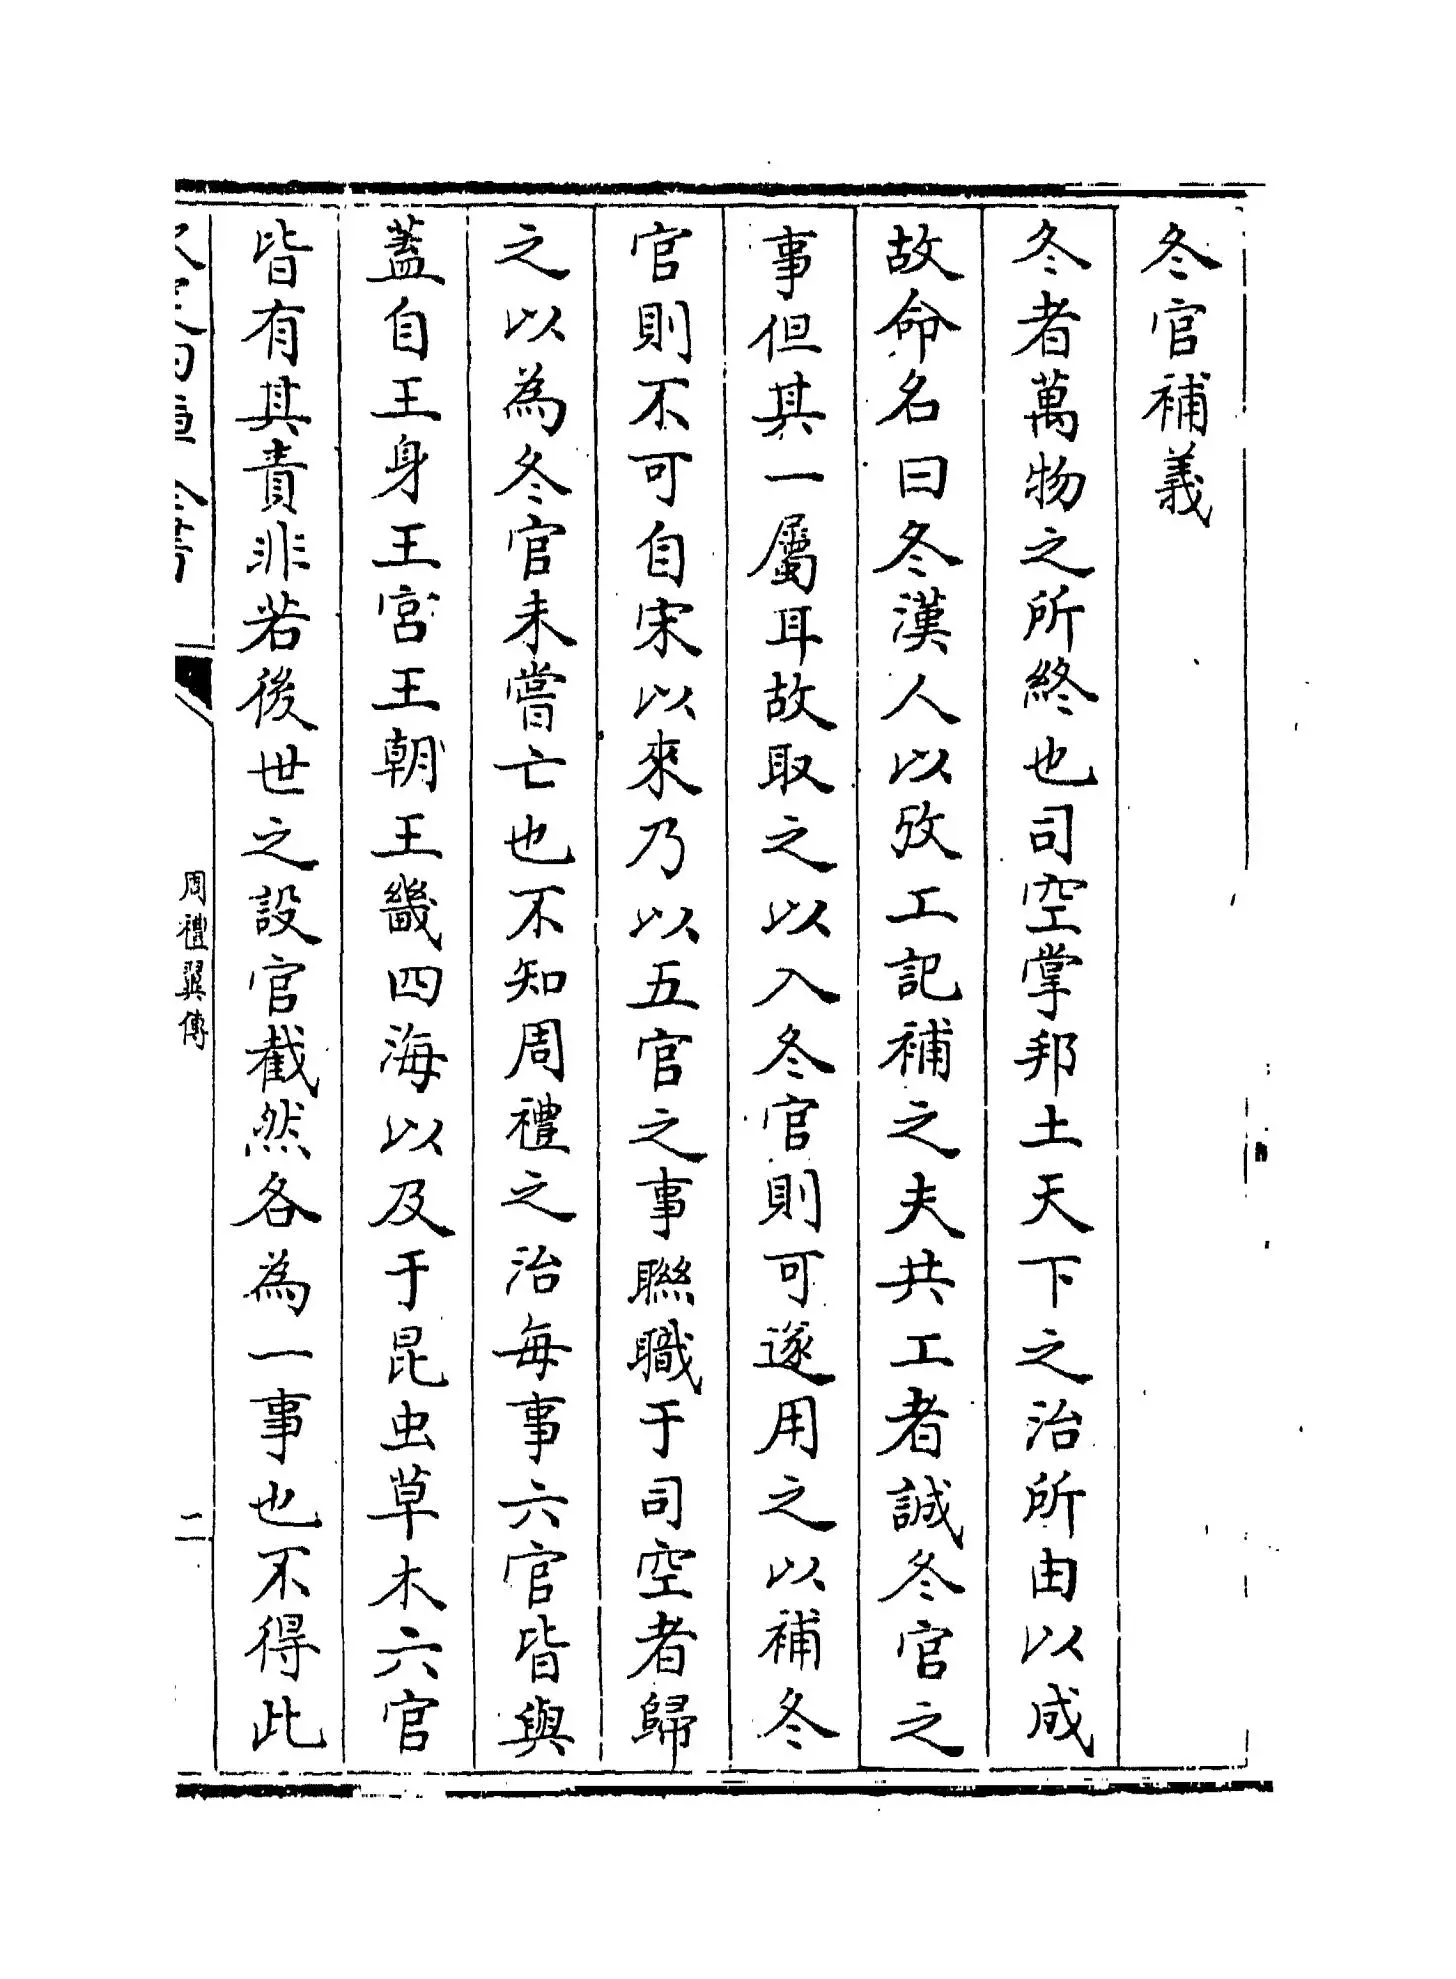 冬官補義
冬者萬物之所終也司空掌邦土天下之治所由以成
故命名曰冬漢人以攷工記補之夫共工者誠冬官之
事但其一屬耳故取之以入冬官則可遂用之以補冬
官則不可自宋以來乃以五官之事聯職于司空者歸
之以為冬官未嘗亡也不知周禮之治每事六官皆與
蓋自王身王宮王朝王畿四海以及于昆虫草木六官
皆有其責非若後世之設官截然各為一事也不得此
周禮翼傳
二